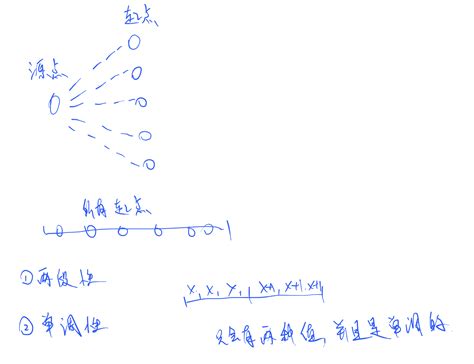 起点
源点
所有起点
①两段性
x, x, x, x+1, x+1, x+1
②单调性
只会有两种值, 并且是单调的